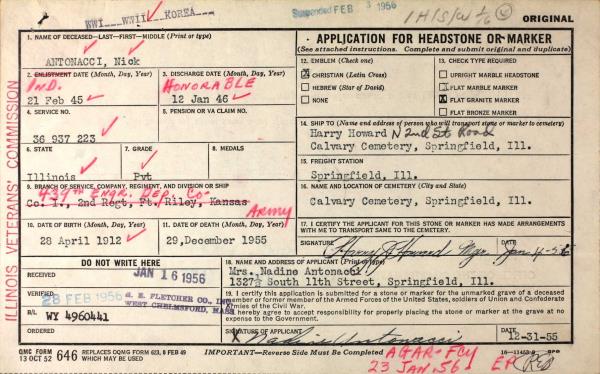 WWI___WWII___KOREA___
Suspended FEB 3 1956
ORIGINAL
1. NAME OF DECEASED—LAST—FIRST—MIDDLE (Print or type)
ANTONACCI, Nick
2. ENLISTMENT DATE (Month, Day, Year)
IND.
21 Feb 45
3. DISCHARGE DATE (Month, Day, Year)
HONORABLE
12 Jan 46
4. SERVICE NO.
36 937 223
5. PENSION OR VA CLAIM NO.
6. STATE
Illinois
7. GRADE
Pvt
8. MEDALS
9. BRANCH OF SERVICE, COMPANY, REGIMENT, AND DIVISION OR SHIP
439TH Engr. Dep. Co.
Co. I., 2nd Regt. Ft. Riley, Kansas
Army
10. DATE OF BIRTH (Month, Day, Year)
28 April 1912
11. DATE OF DEATH (Month, Day, Year)
29, December 1955
ILLINOIS VETERANS' COMMISSION
APPLICATION FOR HEADSTONE OR MARKER
(See attached instructions. Complete and submit original and duplicate)
12. EMBLEM (Check one)
CHRISTIAN (Latin Cross)
HEBREW (Star of David)
NONE
13. CHECK TYPE REQUIRED
UPRIGHT MARBLE HEADSTONE
FLAT MARBLE MARKER
FLAT GRANITE MARKER
FLAT BRONZE MARKER
14. SHIP TO (Name and address of person who will transport stone or marker to cemetery)
Harry Howard N 2nd St Road
Calvary Cemetery, Springfield, Ill.
15. FREIGHT STATION
Springfield, Ill.
16. NAME AND LOCATION OF CEMETERY (City and State)
Calvary Cemetery, Springfield, Ill.
17. I CERTIFY THE APPLICANT FOR THIS STONE OR MARKER HAS MADE ARRANGEMENTS
WITH ME TO TRANSPORT SAME TO THE CEMETERY.
SIGNATURE Harry J. Howard Mgr. Jan 4-56
DO NOT WRITE HERE
RECEIVED
JAN 16 1956
VERIFIED
28 FEB 1956
B/L
WY 4960441
H. E. FLETCHER CO., INC.
WEST CHELMSFORD, MASS
ORDERED
18. NAME AND ADDRESS OF APPLICANT (Print or type)
Mrs. Nadine Antonacci
1327½ South 11th Street, Springfield, Ill.
19. I certify this application is submitted for a stone or marker for the unmarked grave of a deceased
member or former member of the Armed Forces of the United States, soldiers of Union and Confederate
Armies of the Civil War.
I hereby agree to accept responsibility for properly placing the stone or marker at the grave at no
expense to the Government.
SIGNATURE OF APPLICANT
X Nadine Antonacci
12-31-55
QMC FORM
13 OCT 52
646
REPLACES OQMG FORM 623, 8 FEB 49
WHICH IS OBSOLETE.
IMPORTANT—Reverse Side Must Be Completed
AGAR-FCY
23 JAN. 56